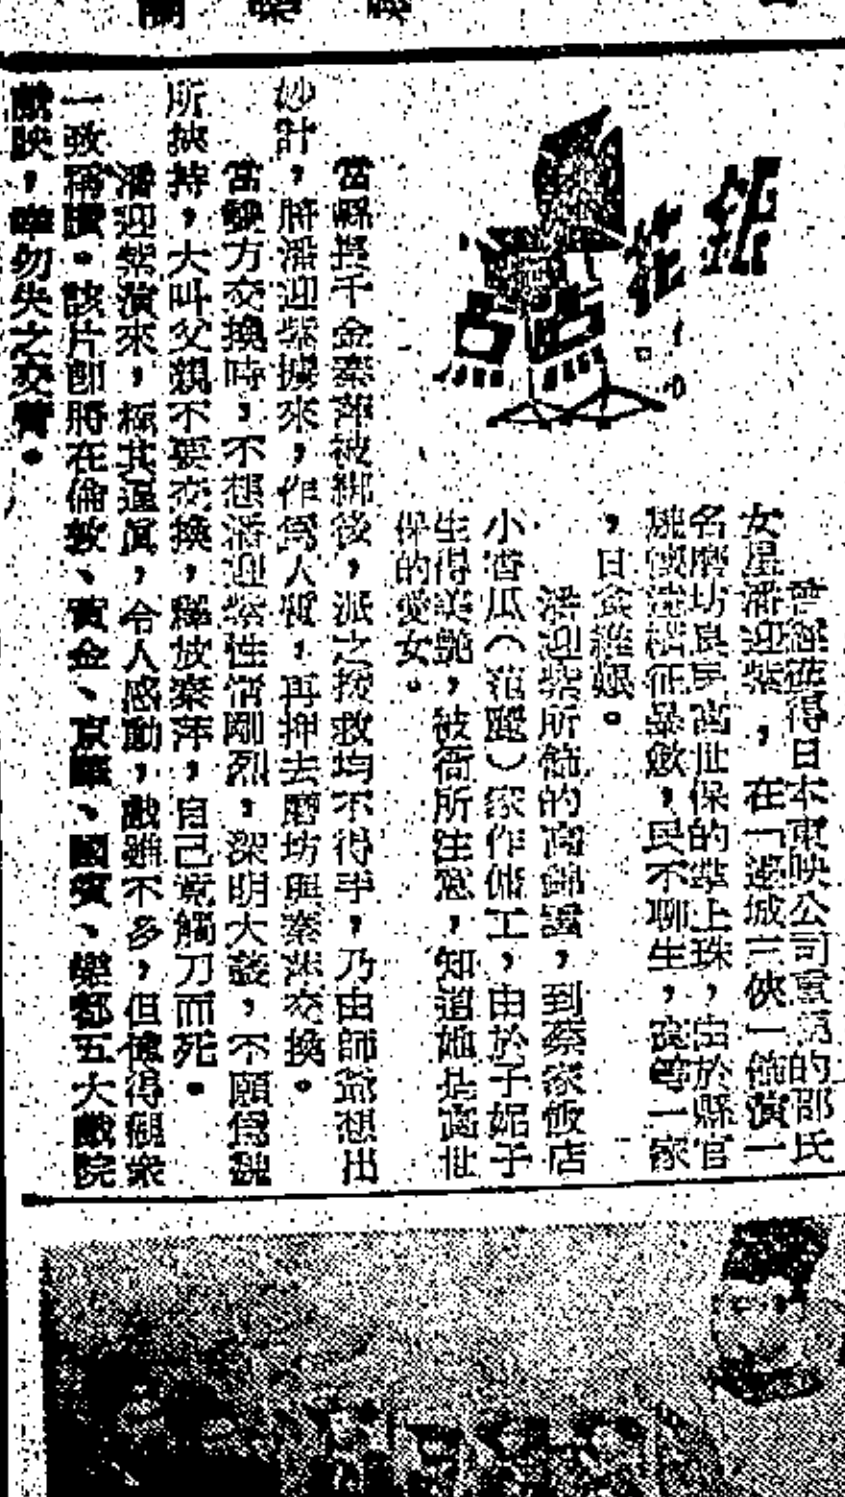 銀花点点
曾經在得日本東映公司重視的邵氏
女星潘迎紫，在「邊城三俠」飾演一
名磨坊良民高世保的掌上珠，由於縣官
征暴斂，民不聊生，一家
，日食維艱。
潘迎紫所飾的高錦，到蔡家飯店
小香瓜（范麗）家作傭工，由於子
生得美艷，被衙所注意，知道她是高世
保的愛女。
當縣千金秦萍被綁後，派之拯救均不得手，乃由師爺想出
妙計，將潘迎紫擄來，作爲人質，再押去磨坊與秦萍交換。
當雙方交換時，不想潘迎紫性情剛烈，深明大義，不願爲
所挾持，大叫父親不要交換，釋放秦萍，自己竟觸刀而死。
潘迎紫演來，極其逼眞，令人感動，戲雖不多，但獲得觀衆
一致稱讚。該片即將在倫敦、寶金、京華、國賓、樂都五大戲院
獻映，幸勿失之交臂。